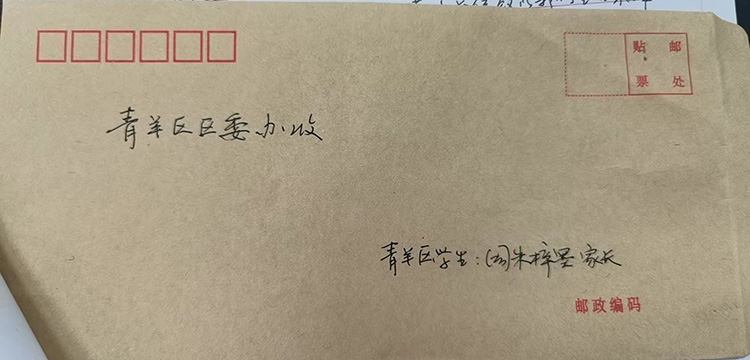 贴 邮
票 处
青羊区区委办收
青羊区学生：周朱梓墨家长
邮政编码